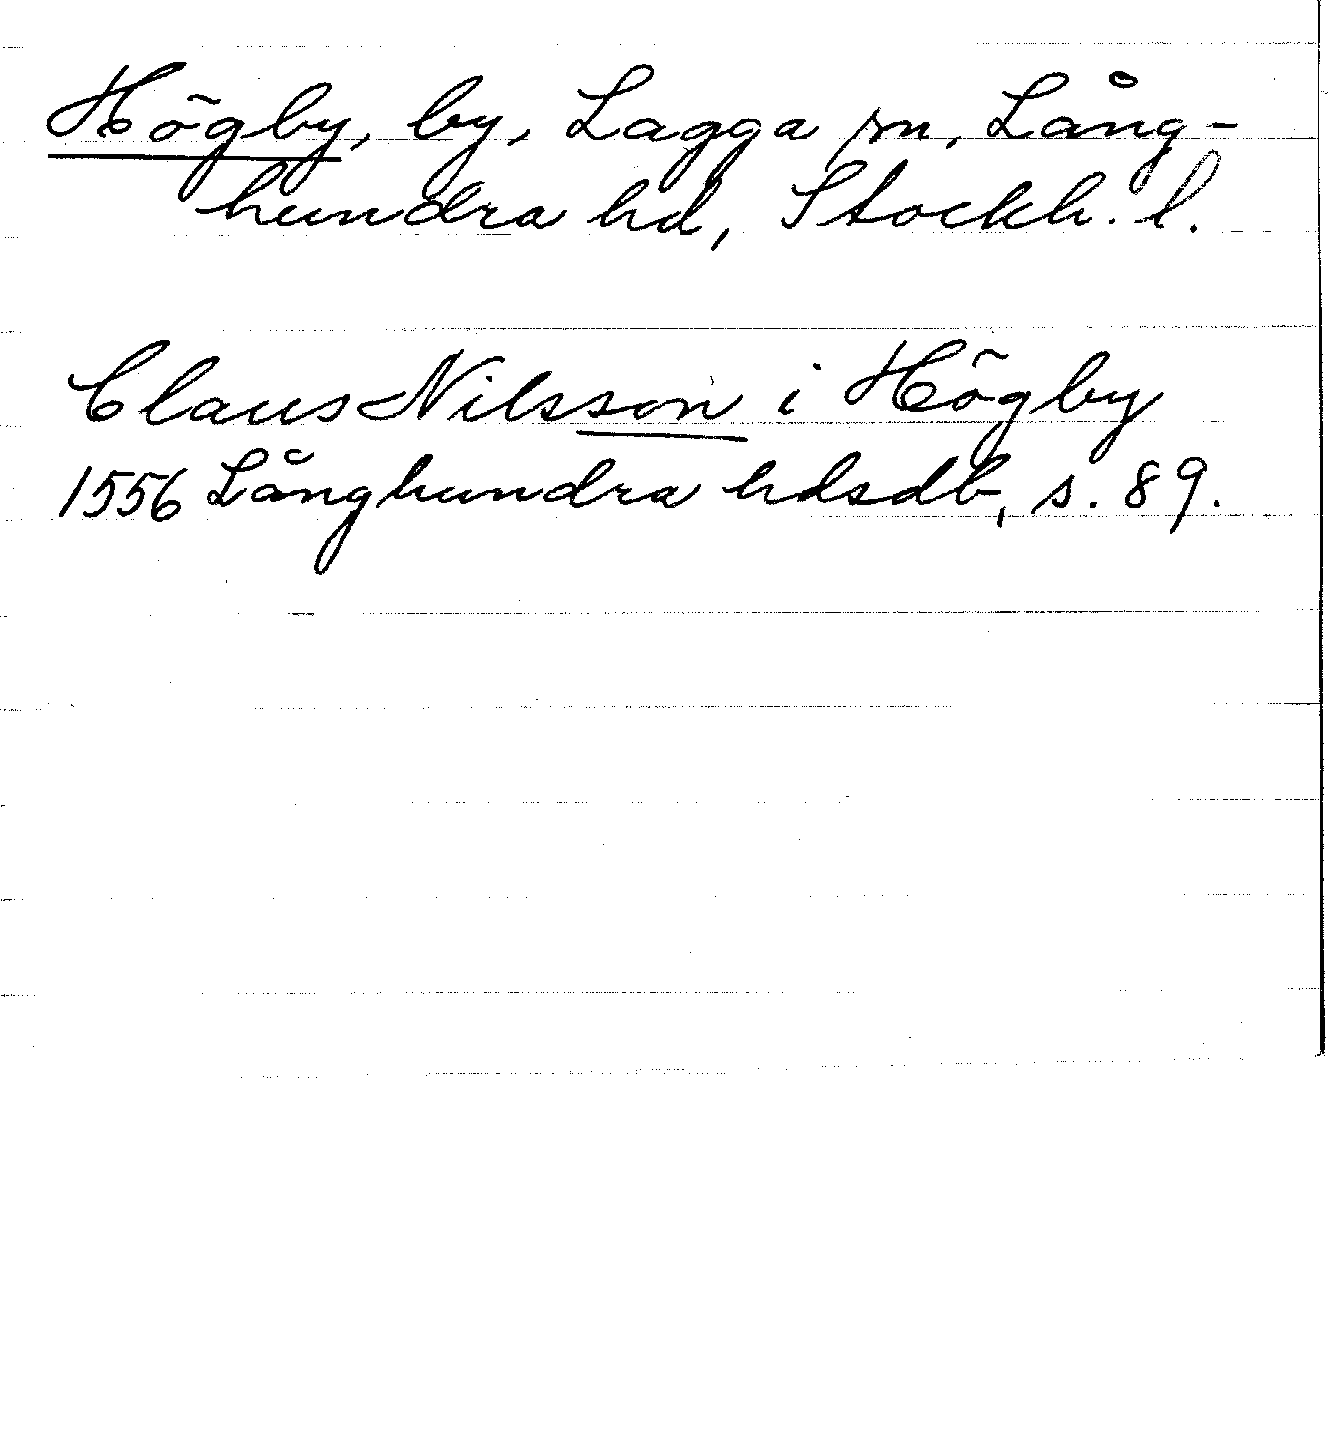 Högby, by, Lagga sn, Lång-
hundra hd, Stockh. l.
Claus Nilsson i Högby
1556 Långhundra hdsdb, s. 89.